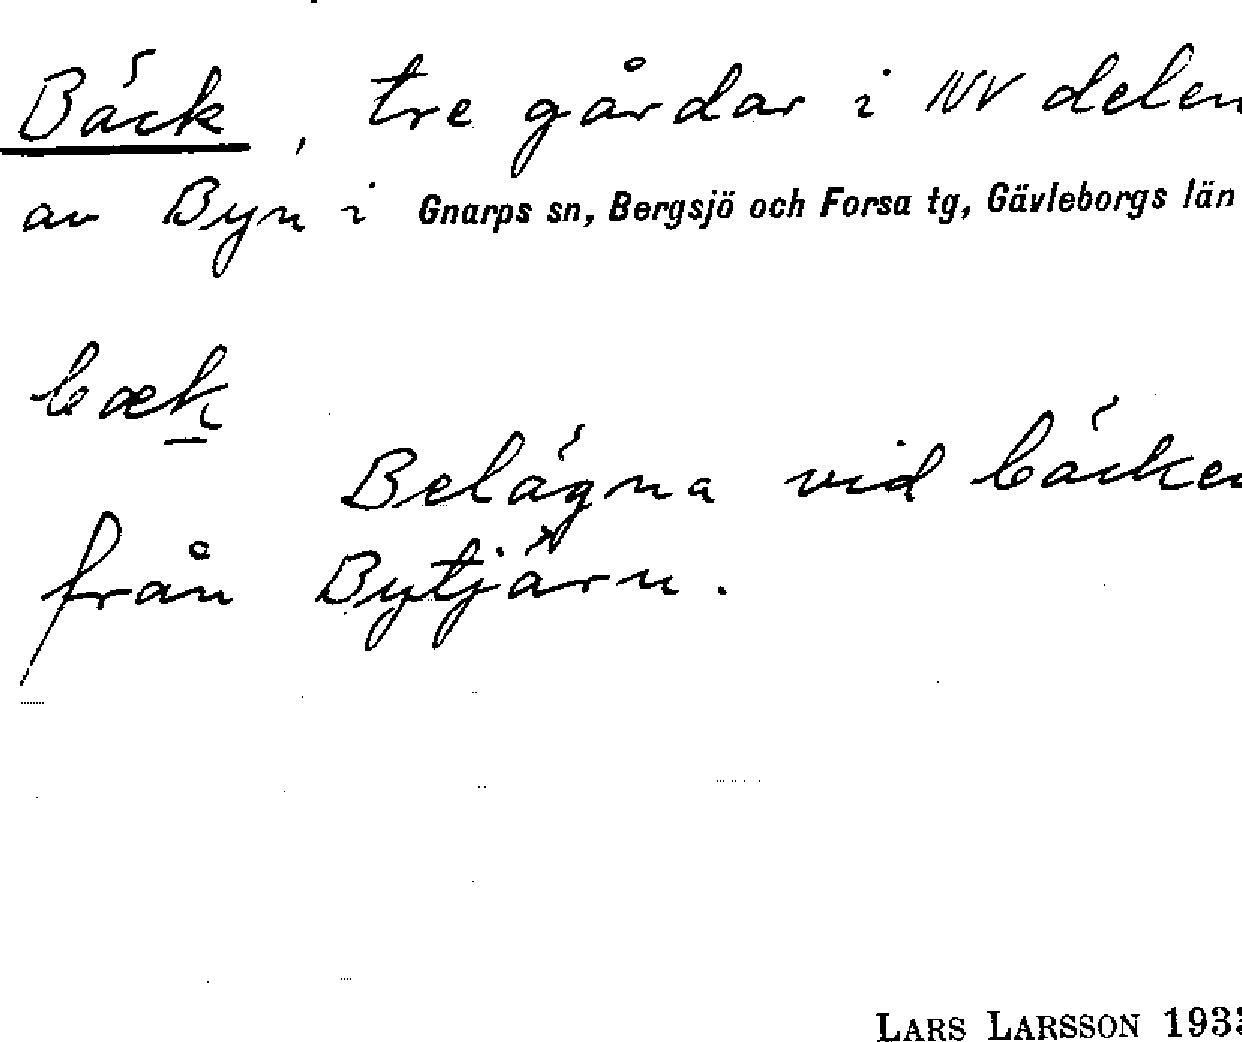 Bäck, tre gårdar i NV delen
av Byn i Gnarps sn, Bergsjö och Forsa tg, Gävleborgs län
bæk
Belägna vid bäcken
från Bytjärn.
LARS LARSSON